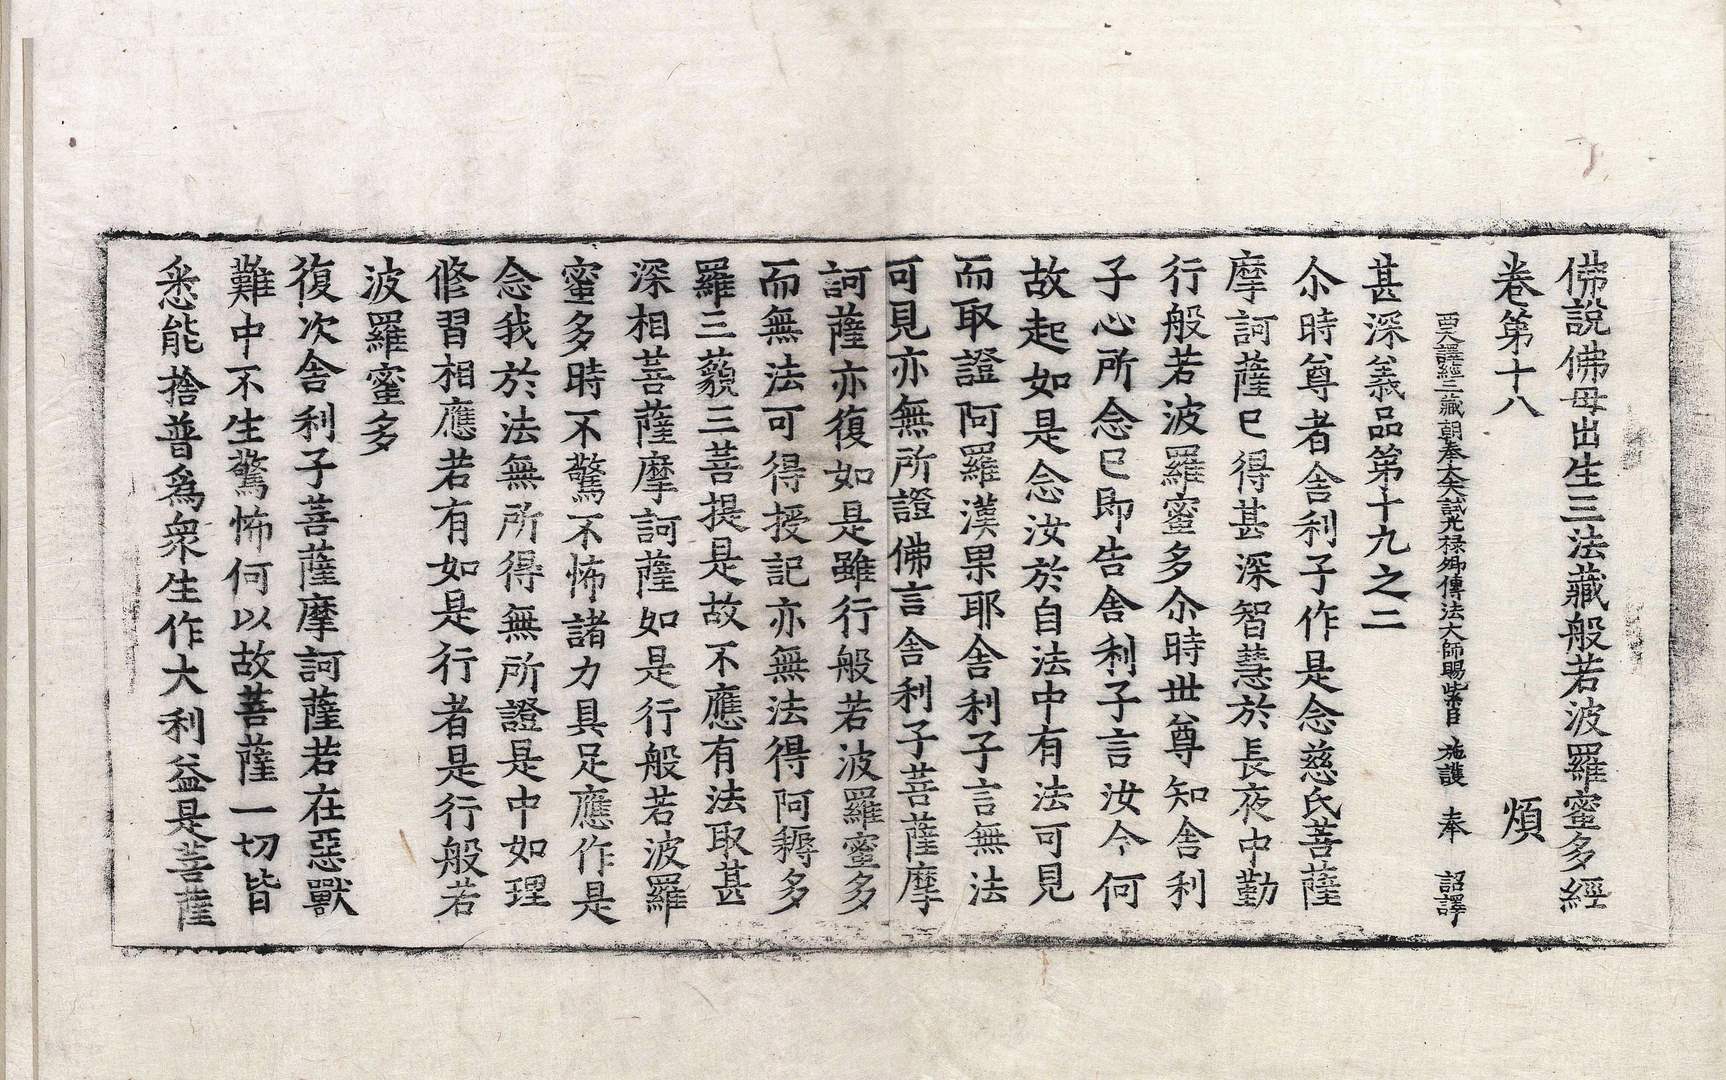 佛說佛母出生三法藏般若波羅蜜多經
卷第十八　煩
西天譯經三藏朝奉大夫試光祿卿傳法大師賜紫臣　施護　奉　詔譯
甚深義品第十九之二
尒時尊者舍利子作是念慈氏菩薩
摩訶薩已得甚深智慧於長夜中勤
行般若波羅蜜多尒時世尊知舍利
子心所念已即告舍利子言汝今何
故起如是念汝於自法中有法可見
而取證阿羅漢果耶舍利子言無法
可見亦無所證佛言舍利子菩薩摩
訶薩亦復如是雖行般若波羅蜜多
而無法可得授記亦無法得阿耨多
羅三藐三菩提是故不應有法取甚
深相菩薩摩訶薩如是行般若波羅
蜜多時不驚不怖諸力具足應作是
念我於法無所得無所證是中如理
修習相應若有如是行者是行般若
波羅蜜多
復次舍利子菩薩摩訶薩若在惡獸
難中不生驚怖何以故菩薩一切皆
悉能捨普爲衆生作大利益是菩薩